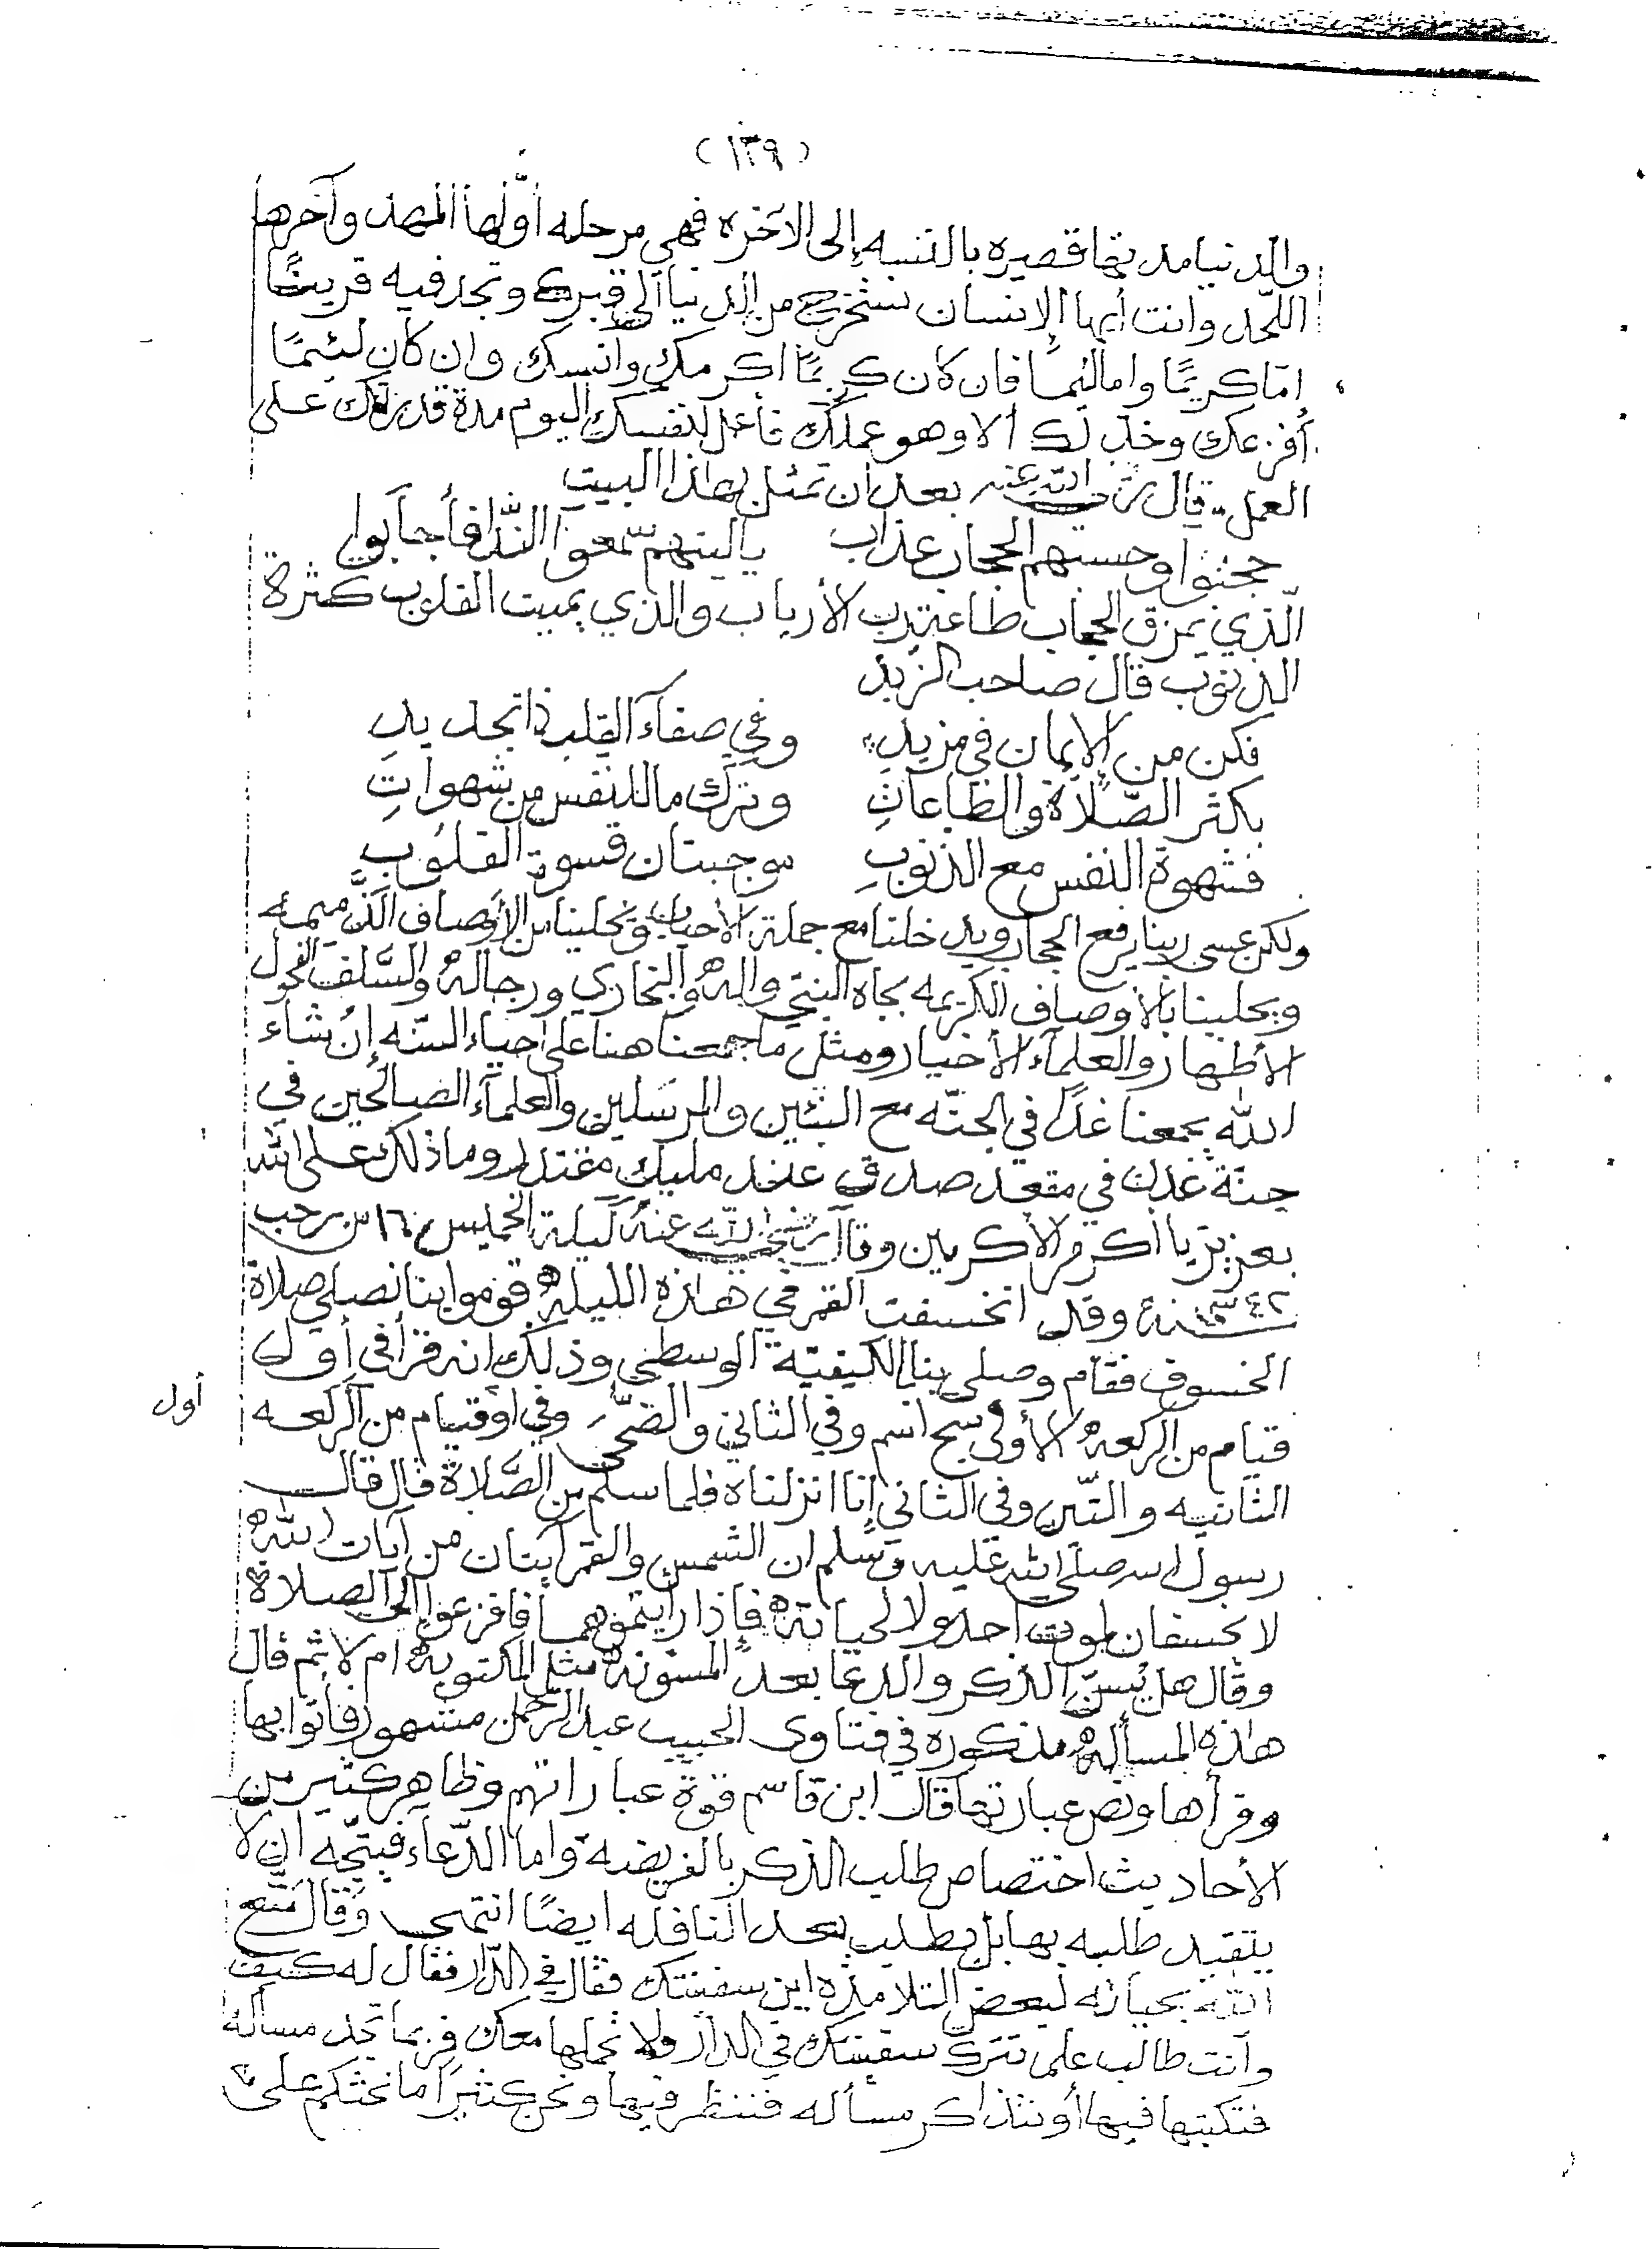 (١٣٩)
والدنيا مدتها قصيره بالنسبه إلى الآخره فهي مرحله أوّلها المهد وآخرها
اللّحد وانت أيها الإنسان ستخرج من الدنيا الى قبرك وتجد فيه قرينًا
امّا كريمًا واما لئيمًا فان كان كريمًا اكرمك وآنسك وان كان لئيمًا
أفزعك وخذلك ألا وهو عملك فأعمل لنفسك اليوم مدة قدرتك على
العمل، قال رضي الله عنه بعد ان تمثل بهاذا البيت
حجبوا وحسبهم الحجاب عذاب ياليتهم سمعوا النّدا فأجابوا
الّذي يمزق الحجاب طاعة رب الأرباب والذي يميت القلوب كثرة
الذنوب قال صاحب الزبد
فكن من الإيمان في مزيدِ وفي صفآء القلب ذا تجديدِ
بكثر الصّلاة والطاعاتِ وترك ما للنفس من شهواتِ
فشهوة النفس مع الذنوبِ موجبتان قسوة القلوبِ
ولكن عسى ربنا يرفع الحجاب ويدخلنا مع جملة الأحباب ويخلينا من الأوصاف الذّميمه
ويحلينا بالأوصاف الكريمه بجاه النبي وآله والبخاري ورجاله والسَّلف الفحول
الأطهار والعلمآء الأخيار ومثل ما جمعنا هنا على احياء السنّه إن شاء
الله يجمعنا غدًا في الجنّه مع النبيّين والمرسَلين والعلمآء الصالحين في
جنّة عدن في مقعد صدق عند مليك مقتدر وما ذلك على الله
بعزيز يا اكرم الأكرمين وقال رضي الله عنه ليلة الخميس ١٦ من رجب
سنة ١٣٤٢ وقد انخسفت القمر في هاذه الليلة قوموا بنا نصلي صلاة
الخسوف فقام وصلى بنا الكيفيّة الوسطى وذلك انه قرأ في أول
قيام من الركعة الأولى سبح اسم وفي الثاني والضحى وفي أوّ قيام من الركعه
أول
الثانيه والتّين وفي الثاني إنا انزلناه فلما سلم من الصَّلاة قال قال
رسول الله صلى الله عليه وسَلم ان الشمس والقمر آيتان من آيات الله
لا يخسفان لموت احد ولا لحياته فإذا رأيتموهما فافزعوا إلى الصلاة
وقال هل يُسنّ الذكر والدعا بعد المسنونة مثل المكتوبة ام لا ثم قال
هاذه المسألة مذكوره في فتاوى الحبيب عبد الرحمن مشهور فأتوا بها
وقرأها ونص عبارتها قال ابن قاسم قوة عباراتهم وظاهر كثير من
الأحاديث اختصاص طلب الذكر بالفريضة واما الدّعآء فيتّجه ان لا
يتقيد طلبه بها بل يطلب بعد النافله ايضًا انتهى وقال متّع
الله بحياته لبعض التلامذه اين سفينتك فقال في الدّار فقال له كيف
وأنت طالب علم تترك سفينتك في الدار ولا تحملها معك فربما تجد مسألة
فتكتبها فيها أو نتذاكر مسأله فننظر فيها ونحن كثيرًا ما نحثكم على